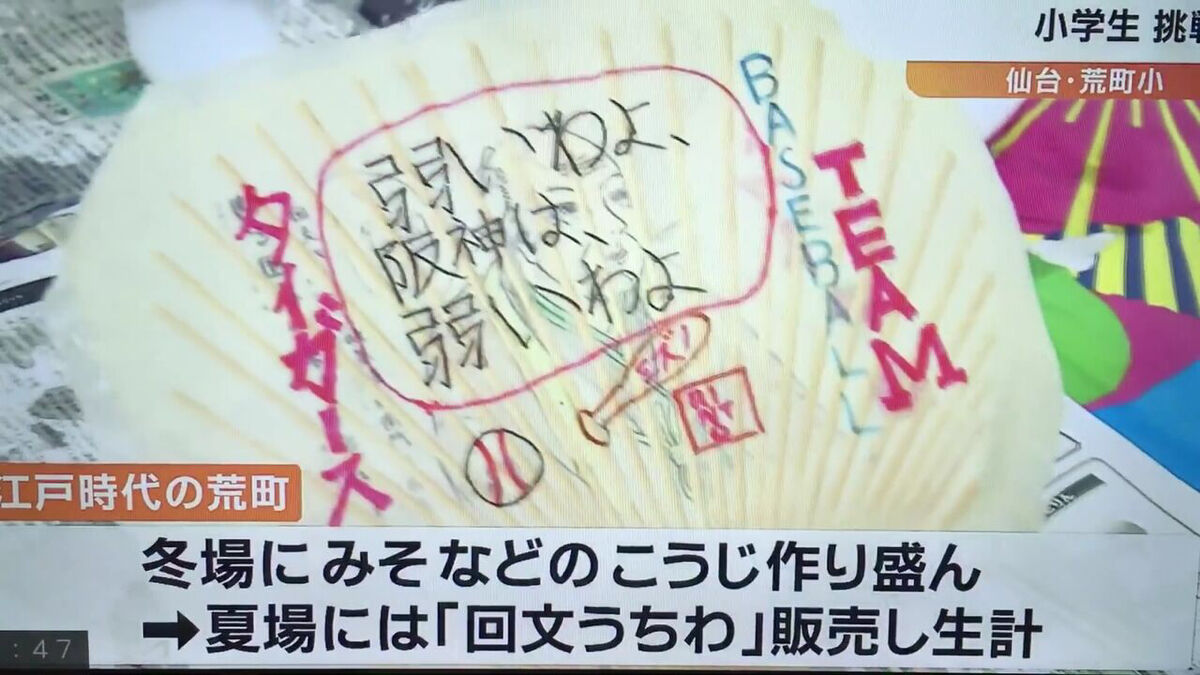 小学生 挑戦
仙台・荒町小
BASEBALL
TEAM
弱いわよ、
阪神は、
弱いわよ
タイガース
江戸時代の荒町
冬場にみそなどのこうじ作り盛ん
➡夏場には「回文うちわ」販売し生計
:47